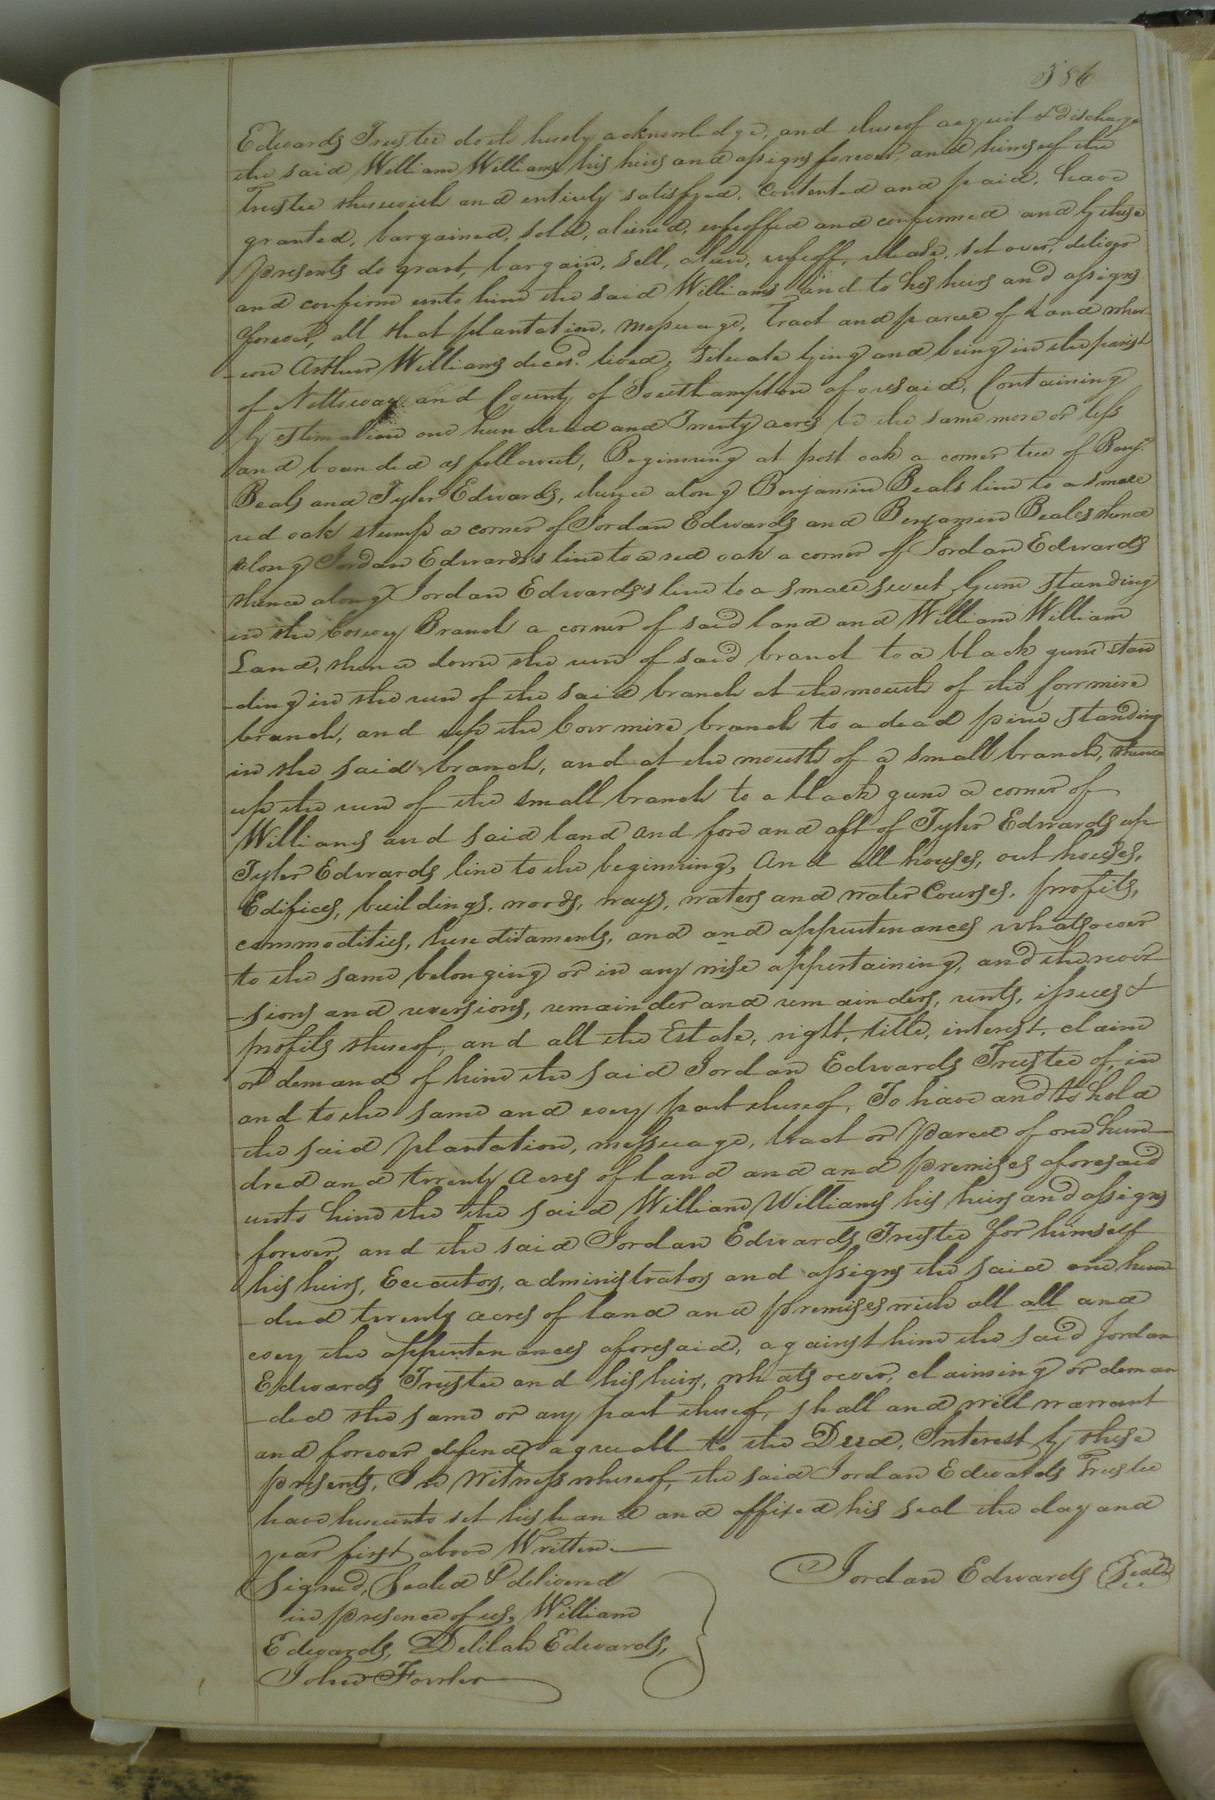 386
Edwards Trustee doth hereby acknowledge, and thereof acquit & discharge
the said William Williams his heirs and assigns forever, and himself the
Trustee therewith and entirely satisfyed, contented and paid, have
granted, bargained, sold, aliened, enfeoffed and confirmed and by these
presents do grant, bargain, sell, alien, enfeoff, release, set over, deliver
and confirm unto him the said Williams and to his heirs and assigns
forever, all that plantation, messuage, Tract and parcel of Land wher
-eon Arthur Williams decesd. lived, Situate lying and being in the parish
of Nottoway and County of Southampton aforesaid, Containing
by estimation one hundred and Twenty acres be the same more or less
and bounded as followeth, Beginning at post oak a corner tree of Benj.
Beals and Tyler Edwards, thence along Benjamin Beals line to a small
red oak stump a corner of Jordan Edwards and Benjamin Beales thence
along Jordan Edwards's line to a red oak a corner of Jordan Edwards
thence along Jordan Edwards's line to a small sweet Gum standing
in the Branch a corner of said land and William William
Land, thence down the run of said branch to a black gum stan
-ding in the run of the said branch at the mouth of the Cowmire
branch, and up the Cowmire branch to a dead pine standing
in the said branch, and at the mouth of a small branch, thence
up the run of the small branch to a black gum a corner of
Williams and said land and fore and aft of Tyler Edwards up
Tyler Edwards line to the beginning, And all houses, out houses,
Edifices, buildings, woods, ways, waters and water Courses, profits,
commodities, hereditaments, and and appurtenances whatsoever
to the same belonging or in any wise appertaining, and the rever
-sions and reversions, remainder and remainders, rents, issues &
profits thereof, and all the Estate, right, title, interest, claim
or demand of him the said Jordan Edwards Trustee of, in
and to the same and every part thereof, To have and to hold
the said plantation, messuage, tract or parcel of one hun-
dred and twenty Acres of land and and premises aforesaid
unto him the the said William Williams his heirs and assigns
forever, and the said Jordan Edwards Trustee for himself
his heirs, Executors, administrators and assigns the said one hun
-dred twenty acres of land and premises with all all and
every the appurtenances aforesaid, against him the said Jordan
Edwards Trustee and his heirs, whatsoever, claiming or deman
-ded the same or any part thereof, shall and will warrant
and forever defend agreeall to the Deed, Interest by these
presents, In Witness whereof, the said Jordan Edwards Trustee
have hereunto set his hand and affixed his seal the day and
year first above Written.
Signed, Sealed & delivered
Jordan Edwards (Seal)
in presence of us, William
Edwards, Delilah Edwards,
John Fowler